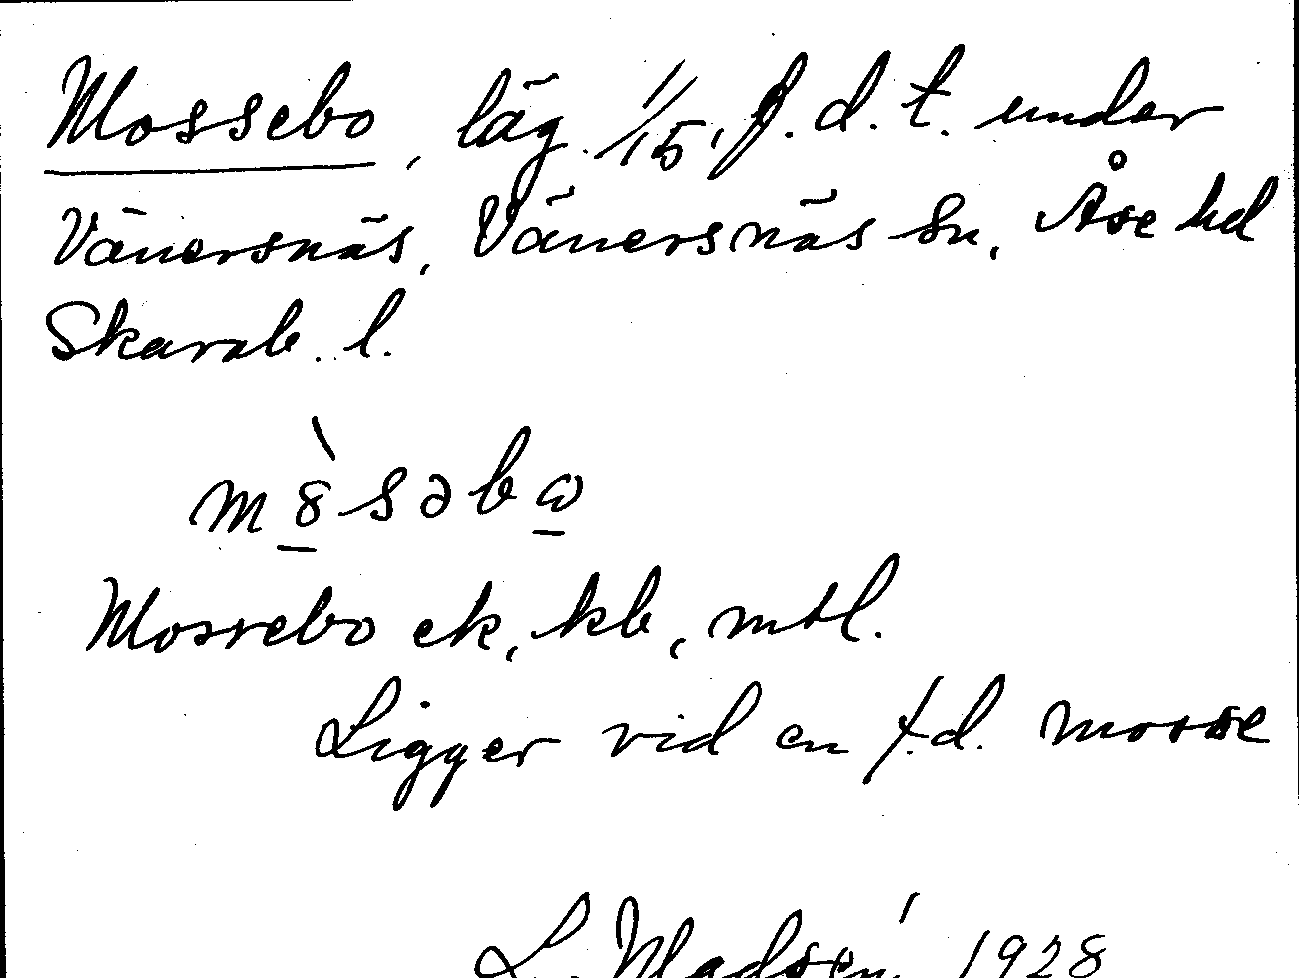 Mossebo, läg. 1/15, f.d.t. under
Vänersnäs, Vänersnäs sn, Åse hd
Skarab. l.
m8̀səbω
Mossebo ek, kb, mtl.
Ligger vid en f.d. mosse
L. Madsén 1928